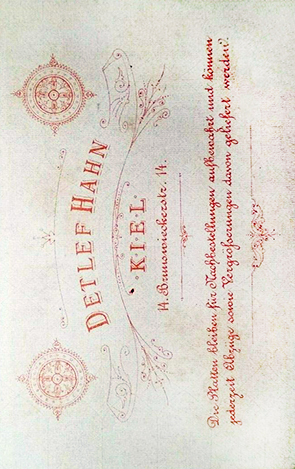 DETLEF HAHN
KIEL
14. Brunswieckerstr. 14.
Die Platten bleiben für Nachbestellungen aufbewahrt und können
jederzeit Abzüge sowie Vergrösserungen davon geliefert werden.